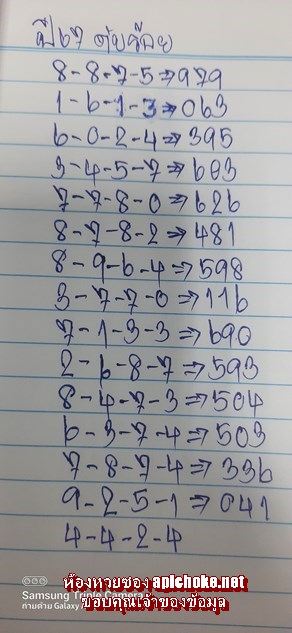 ปี 67 ดับร้อย
8-8-7-5⇒979
1-6-1-3⇒063
6-0-2-4⇒395
3-4-5-7⇒603
7-7-8-0⇒626
8-7-8-2⇒481
8-9-6-4⇒598
3-7-7-0⇒116
7-1-3-3⇒690
2-6-8-7⇒593
8-4-7-3⇒504
6-3-7-4⇒503
7-8-7-4⇒336
9-2-5-1⇒041
4-4-2-4
ห้องหวยซอง apichoke.net
Samsung Triple Camera
ถ่ายด้วย Galaxy
ขอบคุณเจ้าของข้อมูล